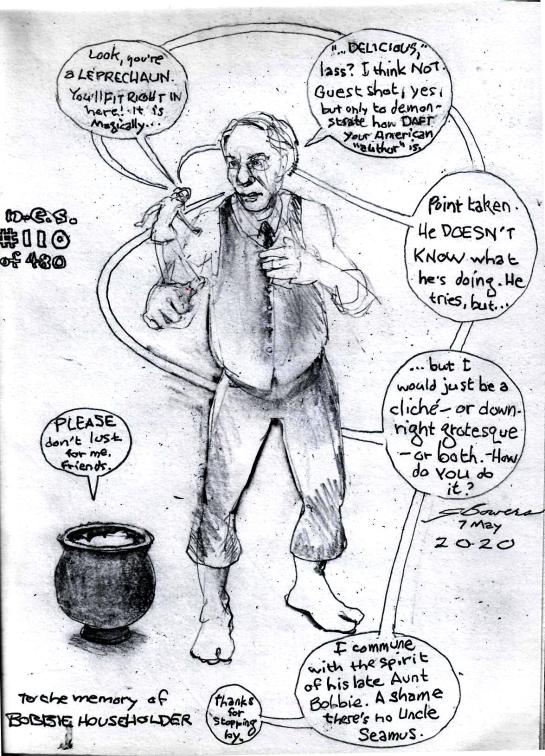 Look, you're
a LEPRECHAUN.
You'll FIT RIGHT IN
here! It is
Magically...
"...DELICIOUS,"
lass? I think NOT.
Guest shot, yes,
but only to demon-
strate how DAFT
your American
"author" is.
Point taken.
He DOESN'T
KNOW what
he's doing. He
tries, but...
...but I
would just be a
cliché - or down-
right grotesque
- or both. - How
do YOU do
it?
I commune
with the spirit
of his late Aunt
Bobbie. A shame
there's no Uncle
Seamus.
Thanks
for
stopping
by.
PLEASE
don't lust
for me,
friends.
#110
of 480
Bowers
7 May
2020
To the memory of
BOBBIE HOUSEHOLDER